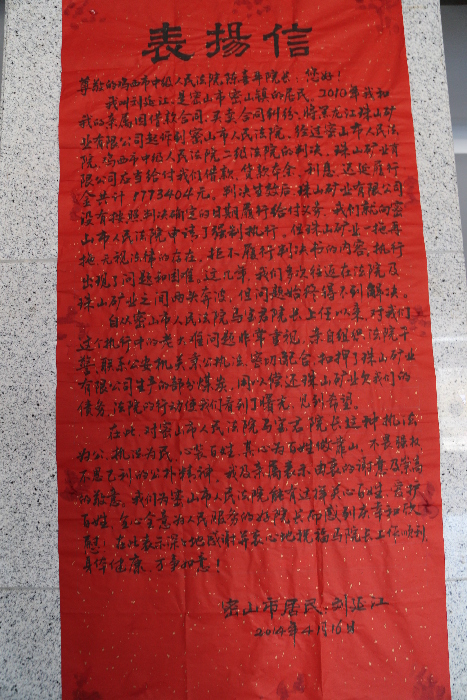 表揚信
尊敬的鸡西市中级人民法院,陈喜年院长:您好!
我叫刘延江,是密山市密山镇的居民,2010年我和
我的亲属因借款合同、买卖合同纠纷,将黑龙江珠山矿
业有限公司起诉到密山市人民法院、经过密山市人民法
院、鸡西市中级人民法院二级法院的判决,珠山矿业有
限公司应当给付我们借款、货款本金、利息、迟延履行
金共计9773404元。判决生效后,珠山矿业有限公司
没有按照判决确定的日期履行给付义务,我们就向密
山市人民法院申请了强制执行,但珠山矿业一拖再
拖,无视法律的存在,拒不履行判决书的内容,执行
出现了问题和困难,这几年,我们多次往返在法院及
珠山矿业之间两头奔波,但问题始终得不到解决。
自从密山市人民法院马宏君院长上任以来,对我们
这个执行中的老大难问题非常重视,亲自组织法院干
警,联系公安机关京公执法,密切配合,扣押了珠山矿业
有限公司生产的部份煤炭,用以偿还珠山矿业欠我们的
债务,法院的行动使我们看到了曙光,见到希望。
在此,对密山市人民法院马宏君院长这种执法
为公,执法为民,心装百姓,真心为百姓做靠山,不畏强权
不思己利的公朴精神,我及亲属表示由衷的谢意及崇高
的敬意。我们为密山市人民法院能有这样关心百姓、爱护
百姓、全心全意为人民服务的好院长而感到庆幸和欣
慰!在此表示深深地感谢并衷心地祝福马院长工作顺利,
身体健康,万事如意!
密山市居民:刘延江
2014年4月16日